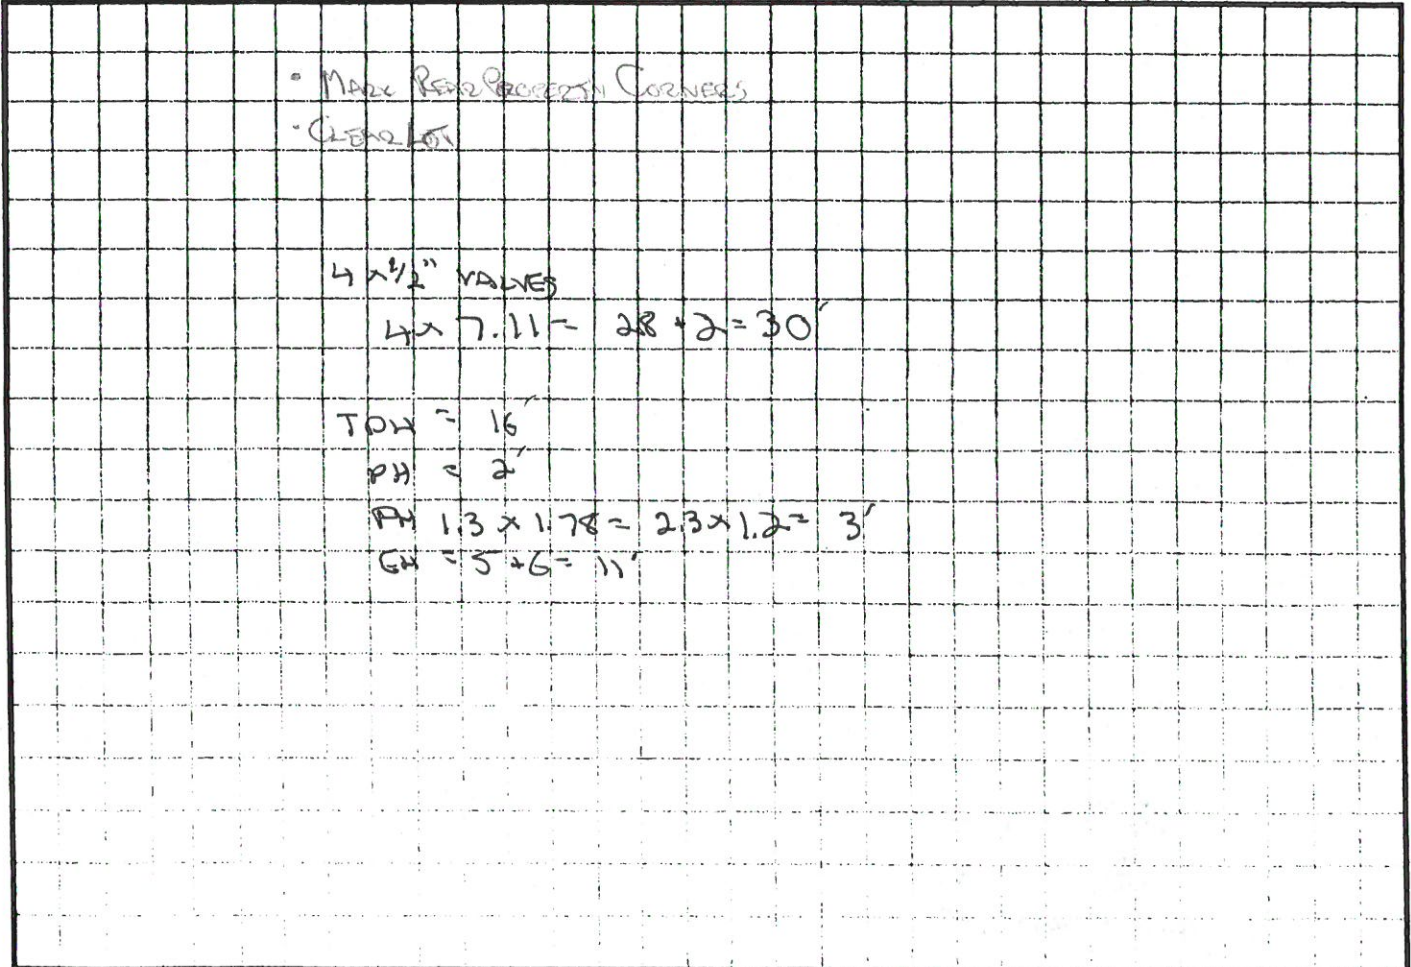 • MARK REAR PROPERTY CORNERS
• CLEAR LOT
4 x 1/2" VALVES
4 x 7.11 = 28 + 2 = 30'
TDH = 16'
PH = 2'
1.3 x 1.78 = 2.3 x 1.2 = 3'
EH = 5 + 6 = 11'